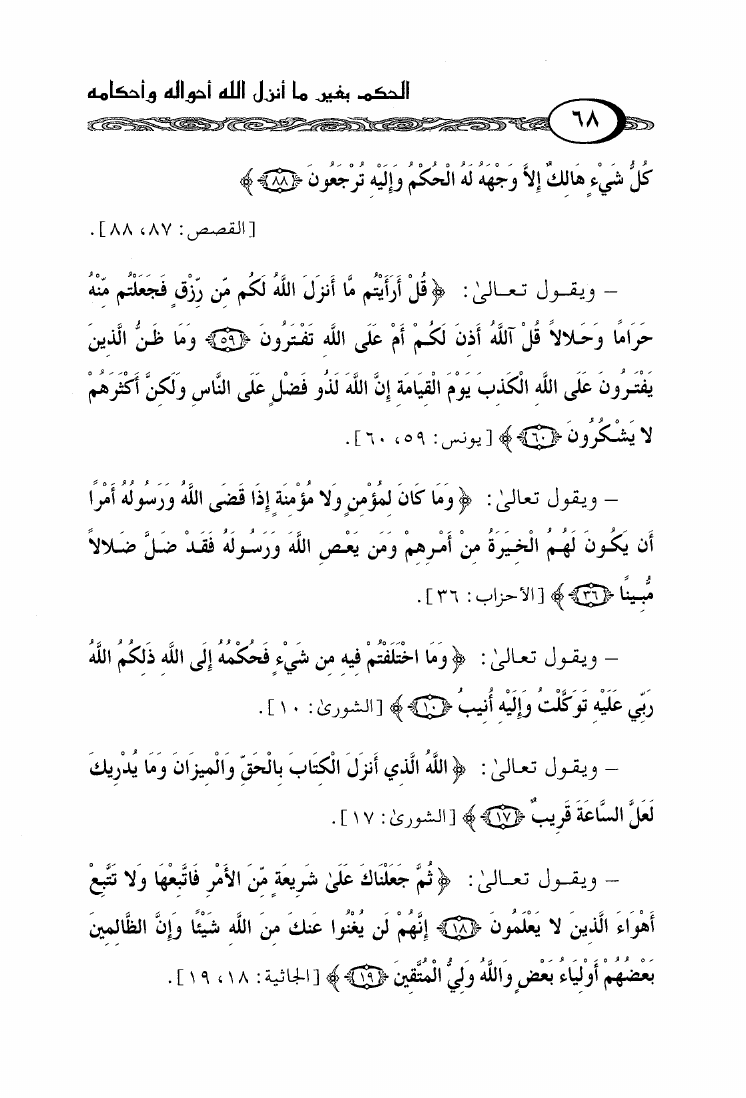 الحكم بغير ما أنزل الله أحواله وأحكامه
٦٨
كُلُّ شَيْءٍ هَالِكٌ إِلاَّ وَجْهَهُ لَهُ الْحُكْمُ وَإِلَيْهِ تُرْجَعُونَ ﴿٨٨﴾ ﴾
[القصص: ٨٧، ٨٨].
– ويقـول تـعـالىٰ: ﴿ قُلْ أَرَأَيْتُم مَّا أَنزَلَ اللَّهُ لَكُم مِّن رِّزْقٍ فَجَعَلْتُم مِّنْهُ
حَرَامًا وَحَلالاً قُلْ آللَّهُ أَذِنَ لَكُمْ أَمْ عَلَى اللَّهِ تَفْتَرُونَ ﴿٥٩﴾ وَمَا ظَنُّ الَّذِينَ
يَفْتَرُونَ عَلَى اللَّهِ الْكَذِبَ يَوْمَ الْقِيَامَةِ إِنَّ اللَّهَ لَذُو فَضْلٍ عَلَى النَّاسِ وَلَكِنَّ أَكْثَرَهُمْ
لا يَشْكُرُونَ ﴿٦٠﴾ ﴾ [يونس: ٥٩، ٦٠].
– ويقول تعالىٰ: ﴿ وَمَا كَانَ لِمُؤْمِنٍ وَلا مُؤْمِنَةٍ إِذَا قَضَى اللَّهُ وَرَسُولُهُ أَمْرًا
أَن يَكُونَ لَهُمُ الْخِيَرَةُ مِنْ أَمْرِهِمْ وَمَن يَعْصِ اللَّهَ وَرَسُولَهُ فَقَدْ ضَلَّ ضَلالاً
مُّبِينًا ﴿٣٦﴾ ﴾ [الأحزاب: ٣٦].
– ويقـول تعالىٰ: ﴿ وَمَا اخْتَلَفْتُمْ فِيهِ مِن شَيْءٍ فَحُكْمُهُ إِلَى اللَّهِ ذَلِكُمُ اللَّهُ
رَبِّي عَلَيْهِ تَوَكَّلْتُ وَإِلَيْهِ أُنِيبُ ﴿١٠﴾ ﴾ [الشورىٰ: ١٠].
– ويقـول تعـالىٰ: ﴿ اللَّهُ الَّذِي أَنزَلَ الْكِتَابَ بِالْحَقِّ وَالْمِيزَانَ وَمَا يُدْرِيكَ
لَعَلَّ السَّاعَةَ قَرِيبٌ ﴿١٧﴾ ﴾ [الشورىٰ: ١٧].
– ويقـول تعـالىٰ: ﴿ ثُمَّ جَعَلْنَاكَ عَلَىٰ شَرِيعَةٍ مِّنَ الأَمْرِ فَاتَّبِعْهَا وَلا تَتَّبِعْ
أَهْوَاءَ الَّذِينَ لا يَعْلَمُونَ ﴿١٨﴾ إِنَّهُمْ لَن يُغْنُوا عَنكَ مِنَ اللَّهِ شَيْئًا وَإِنَّ الظَّالِمِينَ
بَعْضُهُمْ أَوْلِيَاءُ بَعْضٍ وَاللَّهُ وَلِيُّ الْمُتَّقِينَ ﴿١٩﴾ ﴾ [الجاثية: ١٨، ١٩].